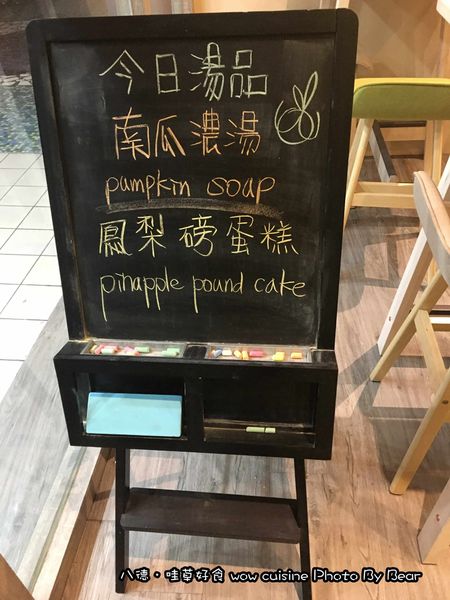 今日湯品
南瓜濃湯
pumpkin soap
鳳梨磅蛋糕
pinapple pound cake
八德・哇草好食 wow cuisine Photo By Bear